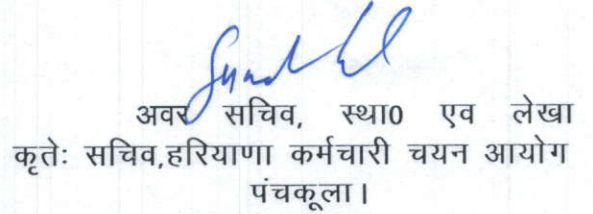 अवर सचिव, स्था0 एव लेखा
कृतेः सचिव,हरियाणा कर्मचारी चयन आयोग
पंचकूला।